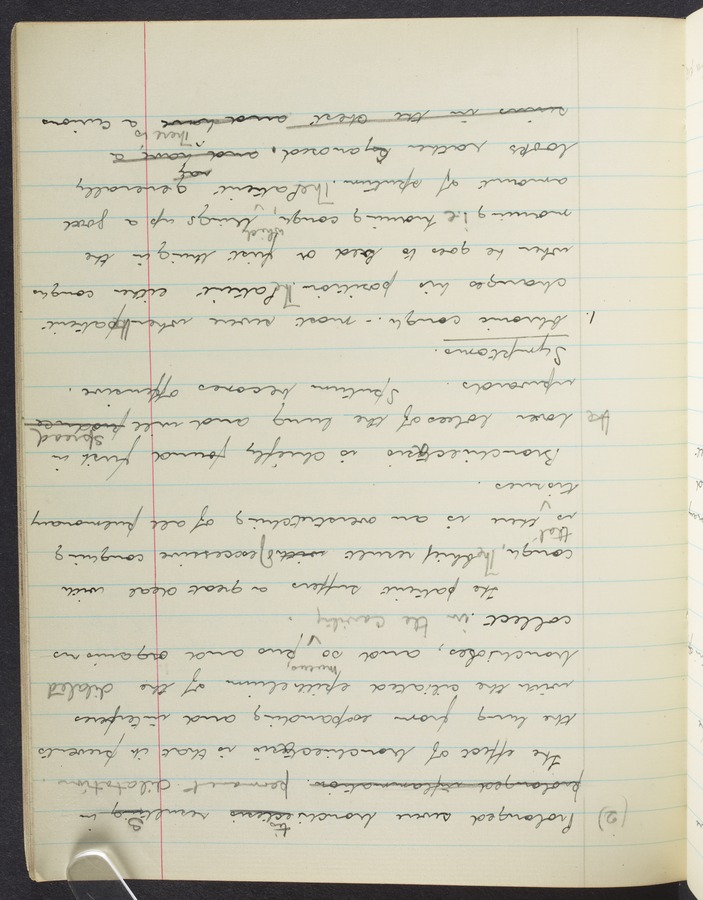 (2) Prolonged severe bronchiectesis tis resulting in
prolonged inflammation. permanent dilatation.
The effect of bronchiectasis is that it prevents
the lung from expanding and interferes
with the ciliated epithelium of the dilated
bronchioles, and so mucus, pus and organisms
collect in the cavity.
The patient suffers a great deal with
cough, The chief result with excessive coughing
is that there is an overstretching of all pulmonary
tissues.
Bronchiectasis is chiefly found first in
the lower lobes of the lung and will produce spread
upwards. Sputum becomes offensive.
Symptoms.
1. Chronic cough - most severe when patient
changes his position. The Patient either coughs
when he goes to bed or first thing in the
morning i.e. morning cough, which brings up a good
amount of sputum. The Patient generally
looks rather cyanosed, and have, a
in the chest and have There is a curious